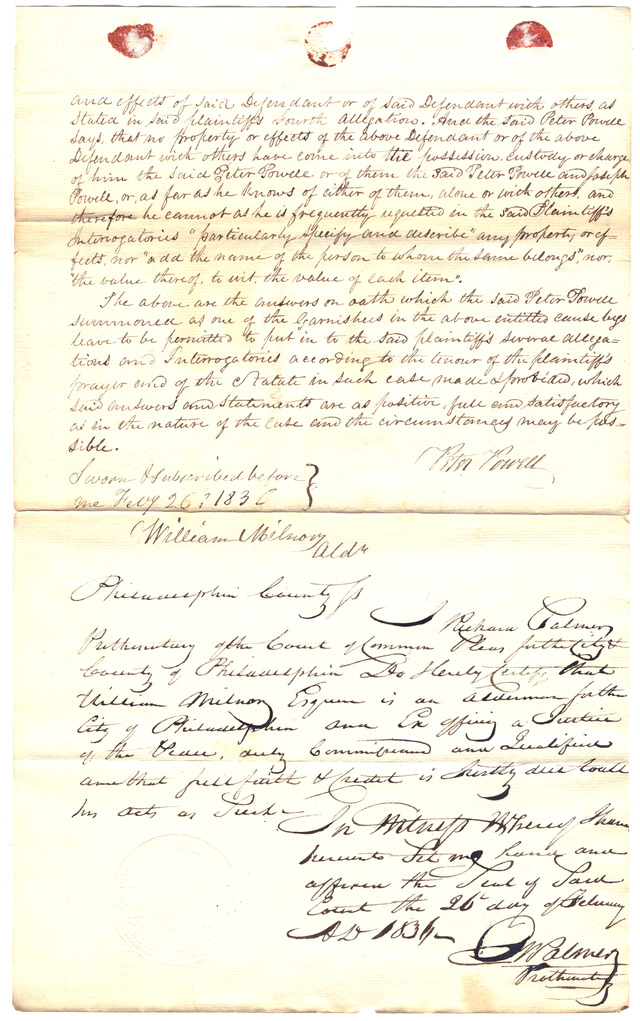 and effects of said Defendant or of said Defendant with others, as
stated in said plaintiffs fourth allegation. And the said Peter Powell
says, that no property or effects of the above Defendant or of the above
Defendant with others have come into the possession, custody or charge
of him the said Peter Powell or of them the said Peter Powell and Joseph
Powell, or, as far as he knows of either of them, alone or with others, and
therefore he cannot as he is frequently requested in the said Plaintiff's
Interrogatories "particularly specify and describe" any property, or ef-
fects, nor "add the name of the person to whom the same belongs", nor,
"the value thereof, to wit, the value of each item".
The above are the answers on oath which the said Peter Powell
summoned as one of the Garnishees in the above entitled cause begs
leave to be permitted to put in to the said plaintiff's several allega-
tions and Interrogatories according to the tenour of the plaintiff's
prayer and of the Statute in such case made & provided, which
said answers and statements are as positive, full and satisfactory
as in the nature of the case and the circumstances may be pos-
sible.
Peter Powell
Sworn & subscribed before
me Feby 26: 1836
William Milnor
Aldn
Philadelphia County ss
I Richard Palmer
Prothonotary of the Court of Common Pleas for the City &
County of Philadelphia Do Hereby Certify, that
William Milnor Esquire is an Alderman for the
City of Philadelphia and Ex officio a Justice
of the Peace, duly Commissioned and Qualified
and that full faith & credit is justly due to all
his acts as Such
In Witness Whereof I have
hereunto Set my hand and
affixed the Seal of Said
Court the 26 day of February
AD 1836
R Palmer
Prothonotary